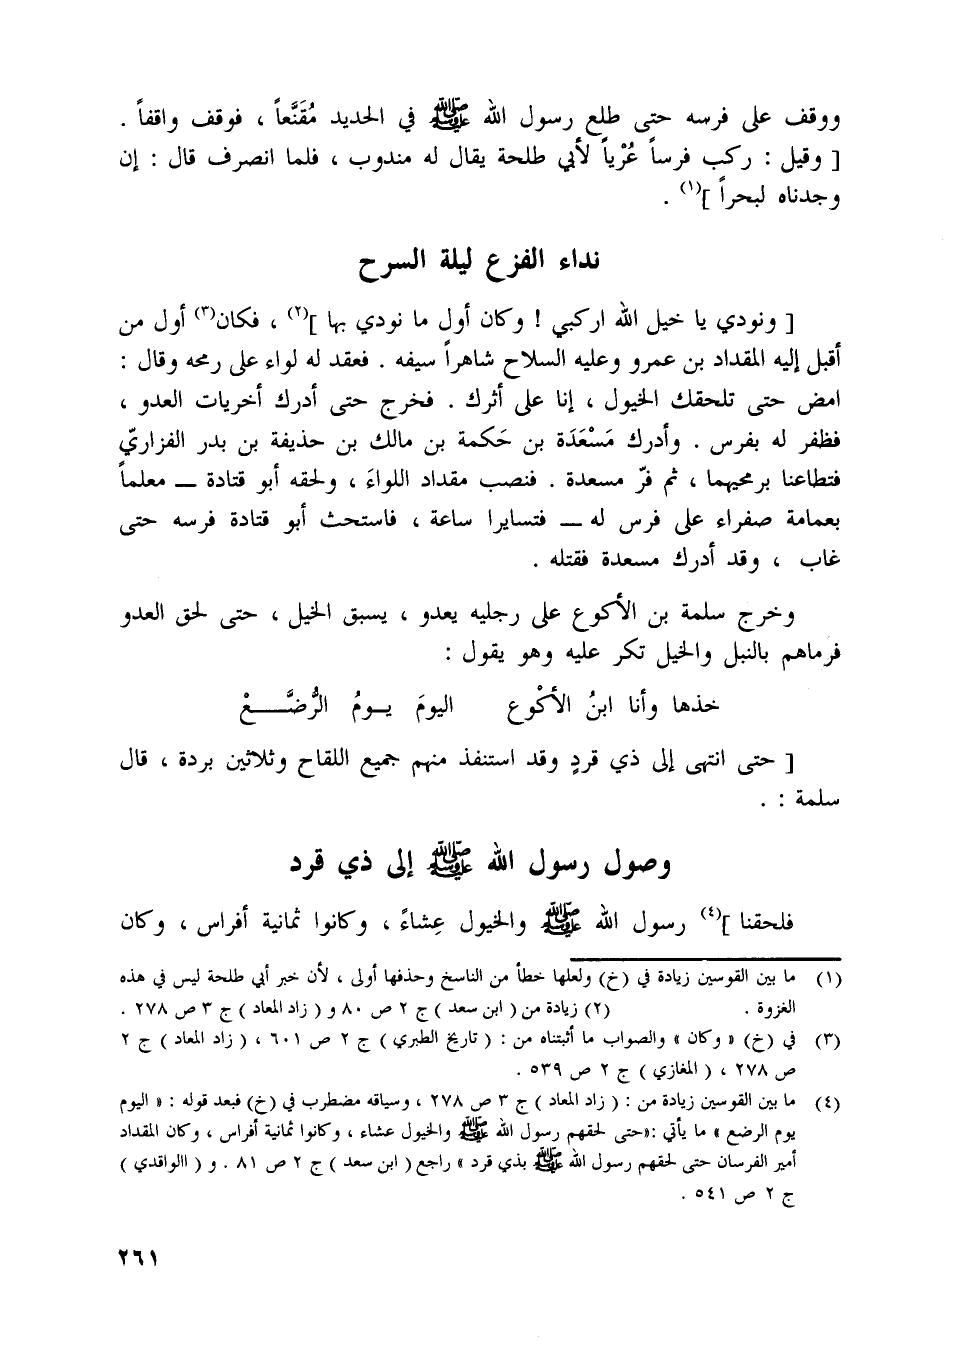 ووقف على فرسه حتى طلع رسول الله ﷺ في الحديد مُقَنَّعاً ، فوقف واقفاً .
[ وقيل : ركب فرساً عُرْياً لأبي طلحة يقال له مندوب ، فلما انصرف قال : إن
وجدناه لبحراً ](١) .
نداء الفزع ليلة السرح
[ ونودي يا خيل الله اركبي ! وكان أول ما نودي بها ](٢) ، فكان(٣) أول من
أقبل إليه المقداد بن عمرو وعليه السلاح شاهراً سيفه . فعقد له لواء على رمحه وقال :
امض حتى تلحقك الخيول ، إنا على أثرك . فخرج حتى أدرك أخريات العدو ،
فظفر له بفرس . وأدرك مَسْعَدَة بن حَكمة بن مالك بن حذيفة بن بدر الفزاريّ
فتطاعنا برمحيهما ، ثم فرّ مسعدة . فنصب مقداد اللواءَ ، ولحقه أبو قتادة — معلماً
بعمامة صفراء على فرس له — فتسايرا ساعة ، فاستحث أبو قتادة فرسه حتى
غاب ، وقد أدرك مسعدة فقتله .
وخرج سلمة بن الأكوع على رجليه يعدو ، يسبق الخيل ، حتى لحق العدو
فرماهم بالنبل والخيل تكر عليه وهو يقول :
خذها وأنا ابنُ الأكْوع اليومَ يـومُ الرُّضَّــــعْ
[ حتى انتهى إلى ذي قردٍ وقد استنفذ منهم جميع اللقاح وثلاثين بردة ، قال
سلمة : .
وصول رسول الله ﷺ إلى ذي قرد
فلحقنا ](٤) رسول الله ﷺ والخيول عِشاءً ، وكانوا ثمانية أفراس ، وكان
(١) ما بين القوسين زيادة في (خ) ولعلها خطأ من الناسخ وحذفها أولى ، لأن خبر أبي طلحة ليس في هذه
الغزوة . (٢) زيادة من ( ابن سعد ) ج ٢ ص ٨٠ و ( زاد المعاد ) ج ٣ ص ٢٧٨ .
(٣) في (خ) « وكان » والصواب ما أثبتناه من : ( تاريخ الطبري ) ج ٢ ص ٦٠١ ، ( زاد المعاد ) ج ٢
ص ٢٧٨ ، ( المغازي ) ج ٢ ص ٥٣٩ .
(٤) ما بين القوسين زيادة من : ( زاد المعاد ) ج ٣ ص ٢٧٨ ، وسياقه مضطرب في (خ) فبعد قوله : « اليوم
يوم الرضع » ما يأتي :«حتى لحقهم رسول الله ﷺ والخيول عشاء ، وكانوا ثمانية أفراس ، وكان المقداد
أمير الفرسان حتى لحقهم رسول الله ﷺ بذي قرد » راجع ( ابن سعد ) ج ٢ ص ٨١ . و ( االواقدي )
ج ٢ ص ٥٤١ .
٢٦١